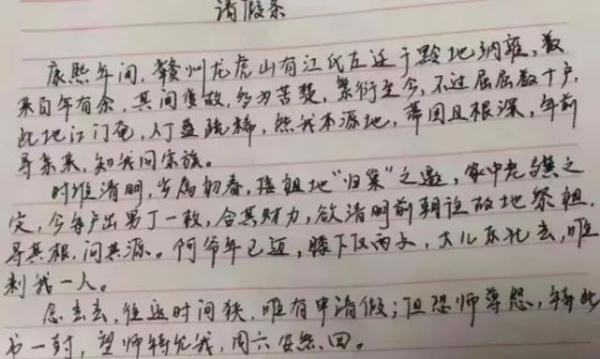 请假条
康熙年间，赣州龙虎山有江氏左迁于黔地纳雍，数
来百年有余，其间变故，多为苦楚，繁衍至今，不过屈屈数十户，
此地江门奄，人丁盈疏稀，然我本源地，蒂固且根深，年前
寻亲来，知我同宗族。
时维清明，岁属初春，接祖地“归巢”之邀，家中老
定，今每户出男丁一枚，合其财力，欲清明前朝往故地祭祖，
寻其根，问其源。阿爷年已迈，膝下仅两子，大儿东北去，唯
剩我一人。
念去去，往返时间狭，唯有申请假；但恐师尊怨，特此
书一封，望师特允我，周六安然回。